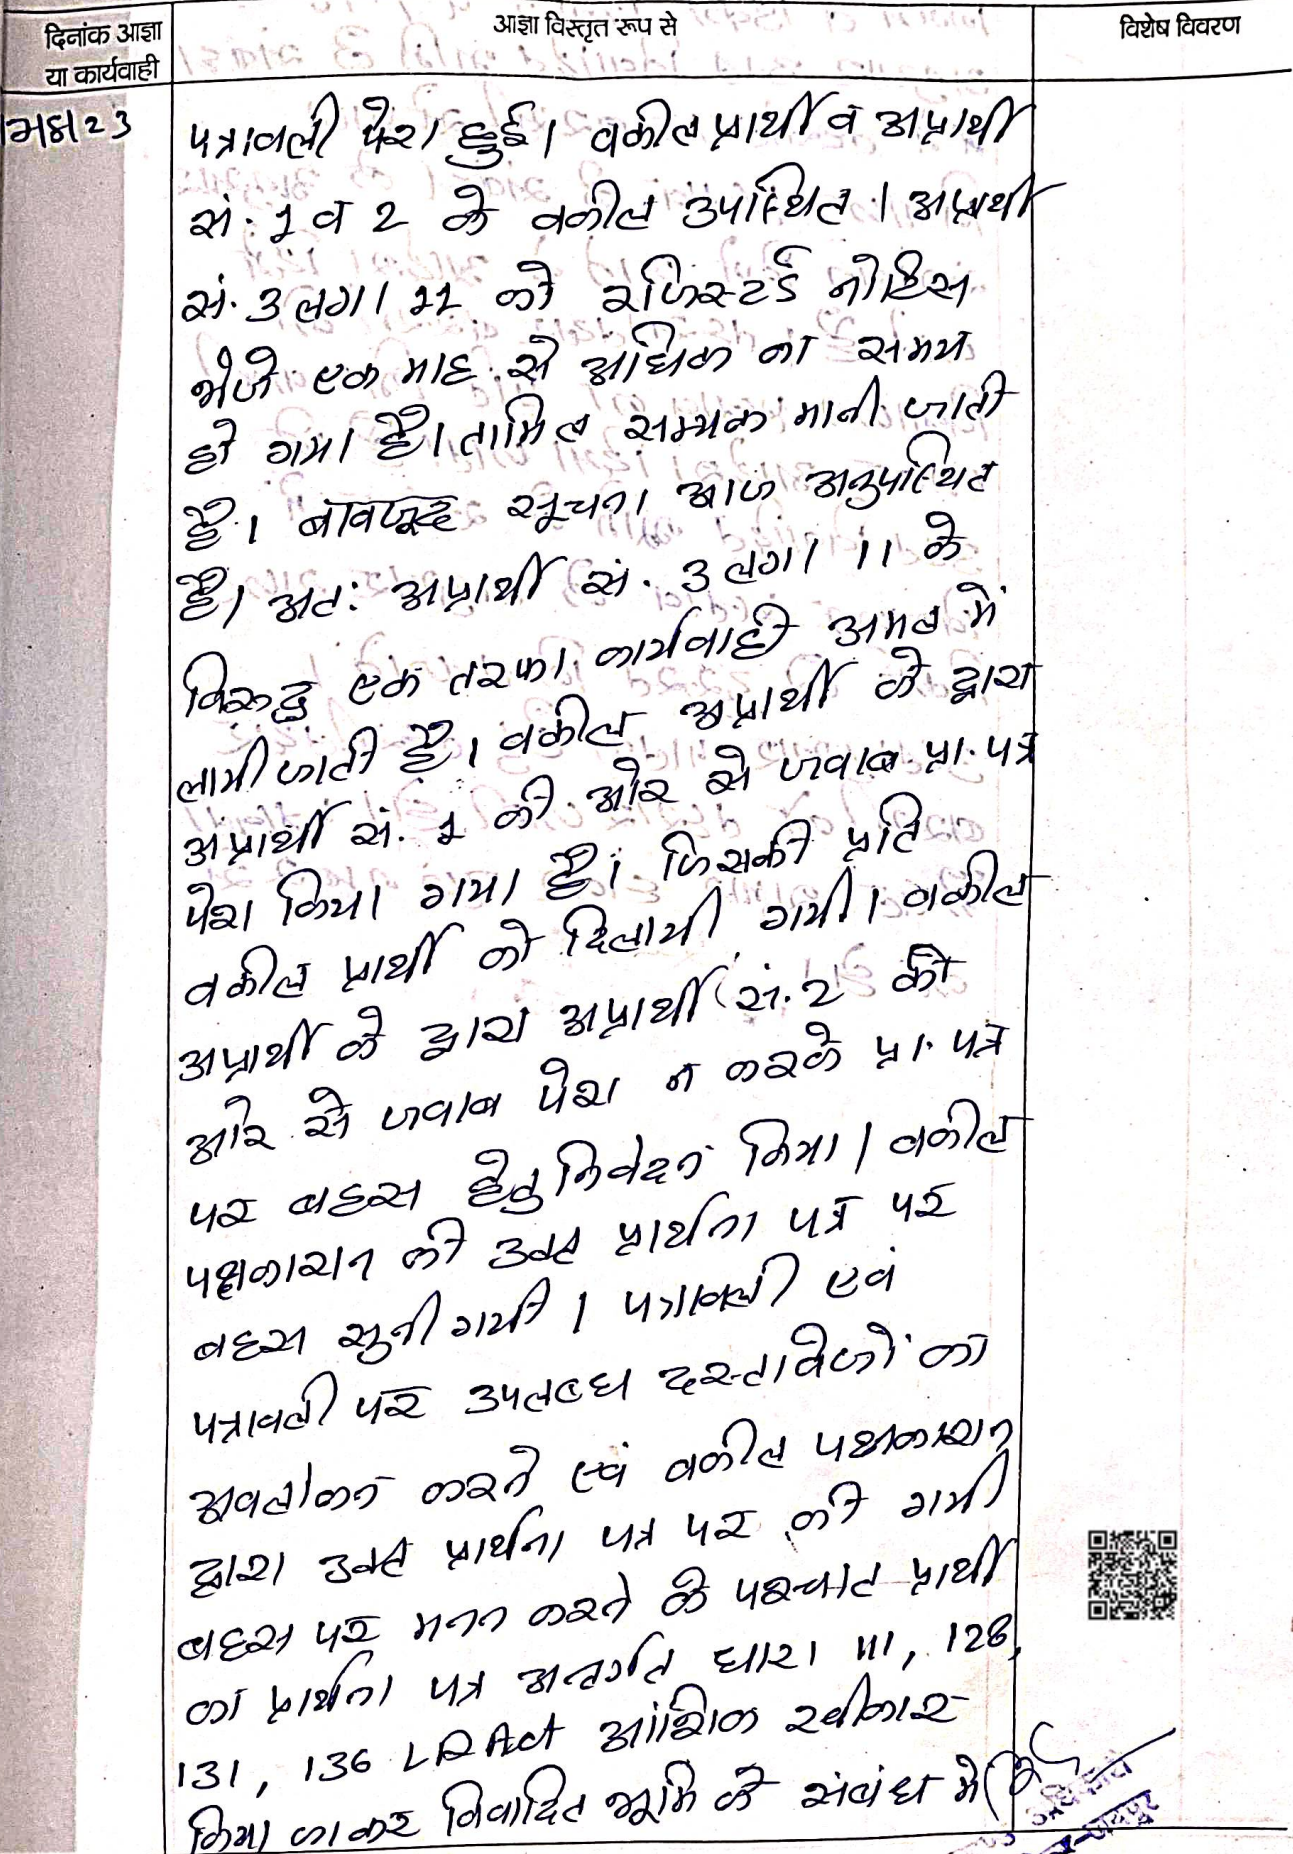 दिनांक आज्ञा
या कार्यवाही
आज्ञा विस्तृत रूप से
विशेष विवरण
पत्रावली पेश हुई। वकील प्रार्थी व अप्रार्थी
सं. 1 व 2 के वकील उपस्थित। अप्रार्थी
सं. 3 लगा 11 को रजिस्टर्ड नोटिस
भेजे एक माह से अधिक का समय
हो गया है। तामिल सम्यक मानी जाती
है। बावजूद सूचना आज अनुपस्थित
है। अतः अप्रार्थी सं. 3 लगा 11 के
विरूद्ध एक तरफा कार्यवाही अमल में
लायी जाती है। वकील अप्रार्थी के द्वारा
अप्रार्थी सं. 1 की ओर से जवाब प्रा. पत्र
पेश किया गया है। जिसकी प्रति
वकील प्रार्थी को दिलायी गयी। वकील
अप्रार्थी के द्वारा अप्रार्थी सं. 2 की
ओर से जवाब पेश न करके प्रा. पत्र
पर बहस हेतु निवेदन किया। वकील
पक्षकारान की उक्त प्रार्थना पत्र पर
बहस सुनी गयी। पत्रावली एवं
पत्रावली पर उपलब्ध दस्तावेजों का
अवलोकन करने एवं वकील पक्षकारान
द्वारा उक्त प्रार्थना पत्र पर की गयी
बहस पर मनन करने के पश्चात प्रार्थी
का प्रार्थना पत्र अन्तर्गत धारा 111, 128,
131, 136 LR Act आंशिक स्वीकार
किया जाकर विवादित भूमि के संबंध में
अधिकारी
जयपुर